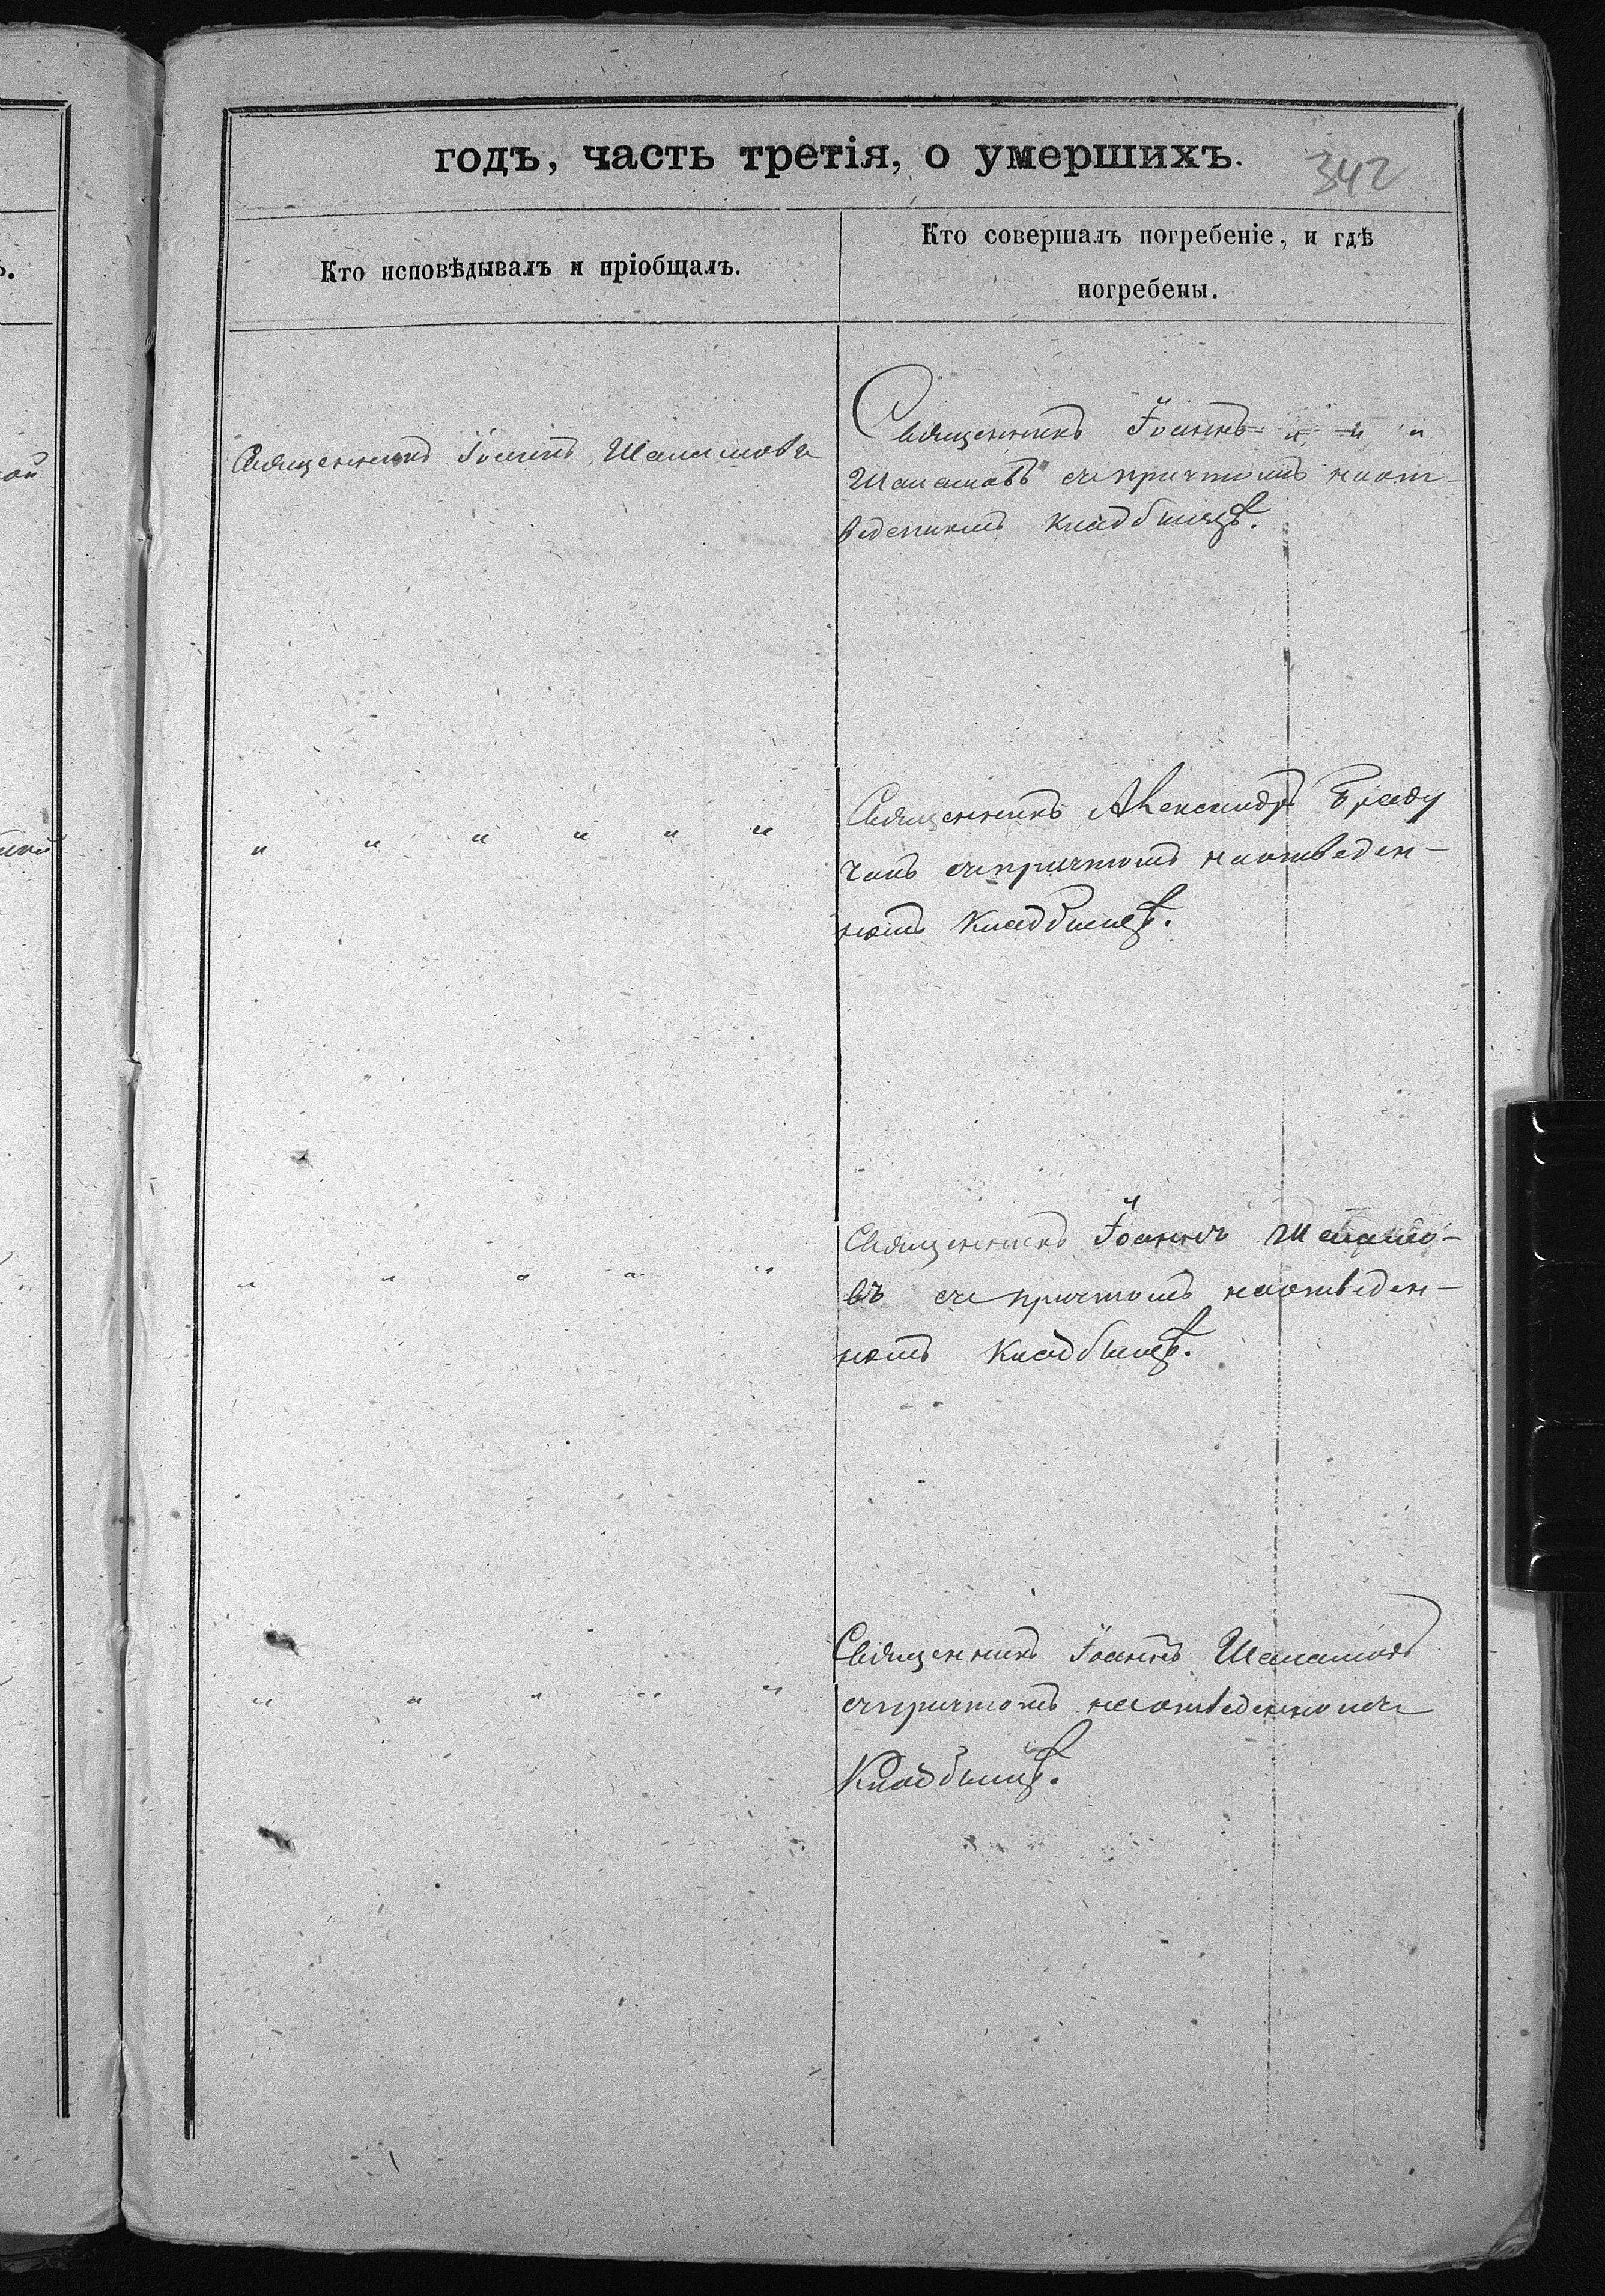 годъ, часть третія, о умершихъ.
342
Кто исповѣдывалъ и пріобщалъ.
Кто совершалъ погребеніе, и гдѣ
погребены.
Священникъ Іоаннъ Шаламовъ
Священникъ Іоаннъ " " "
Шаламовъ съ причтомъ на от-
веденномъ кладбищѣ.
" " " " " "
Священникъ Александръ
чанъ съ причтомъ на отведен-
номъ кладбищѣ.
" " " " "
Священникъ Іоаннъ Шаламо-
въ съ причтомъ на отведен-
номъ кладбищѣ.
" " " " "
Священникъ Іоаннъ Шаламовъ
съ причтомъ на отведенномъ
кладбищѣ.